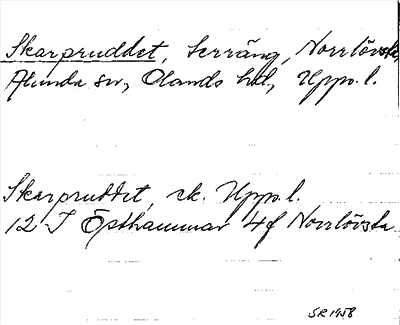 Skarpruddet, terräng, Norrlövsta,
Alunda sn, Olands hd, Upps. l.
Skarpruddet, ek. Upps. l.
12 I Östhammar 4f Norrlövsta
SR 1958